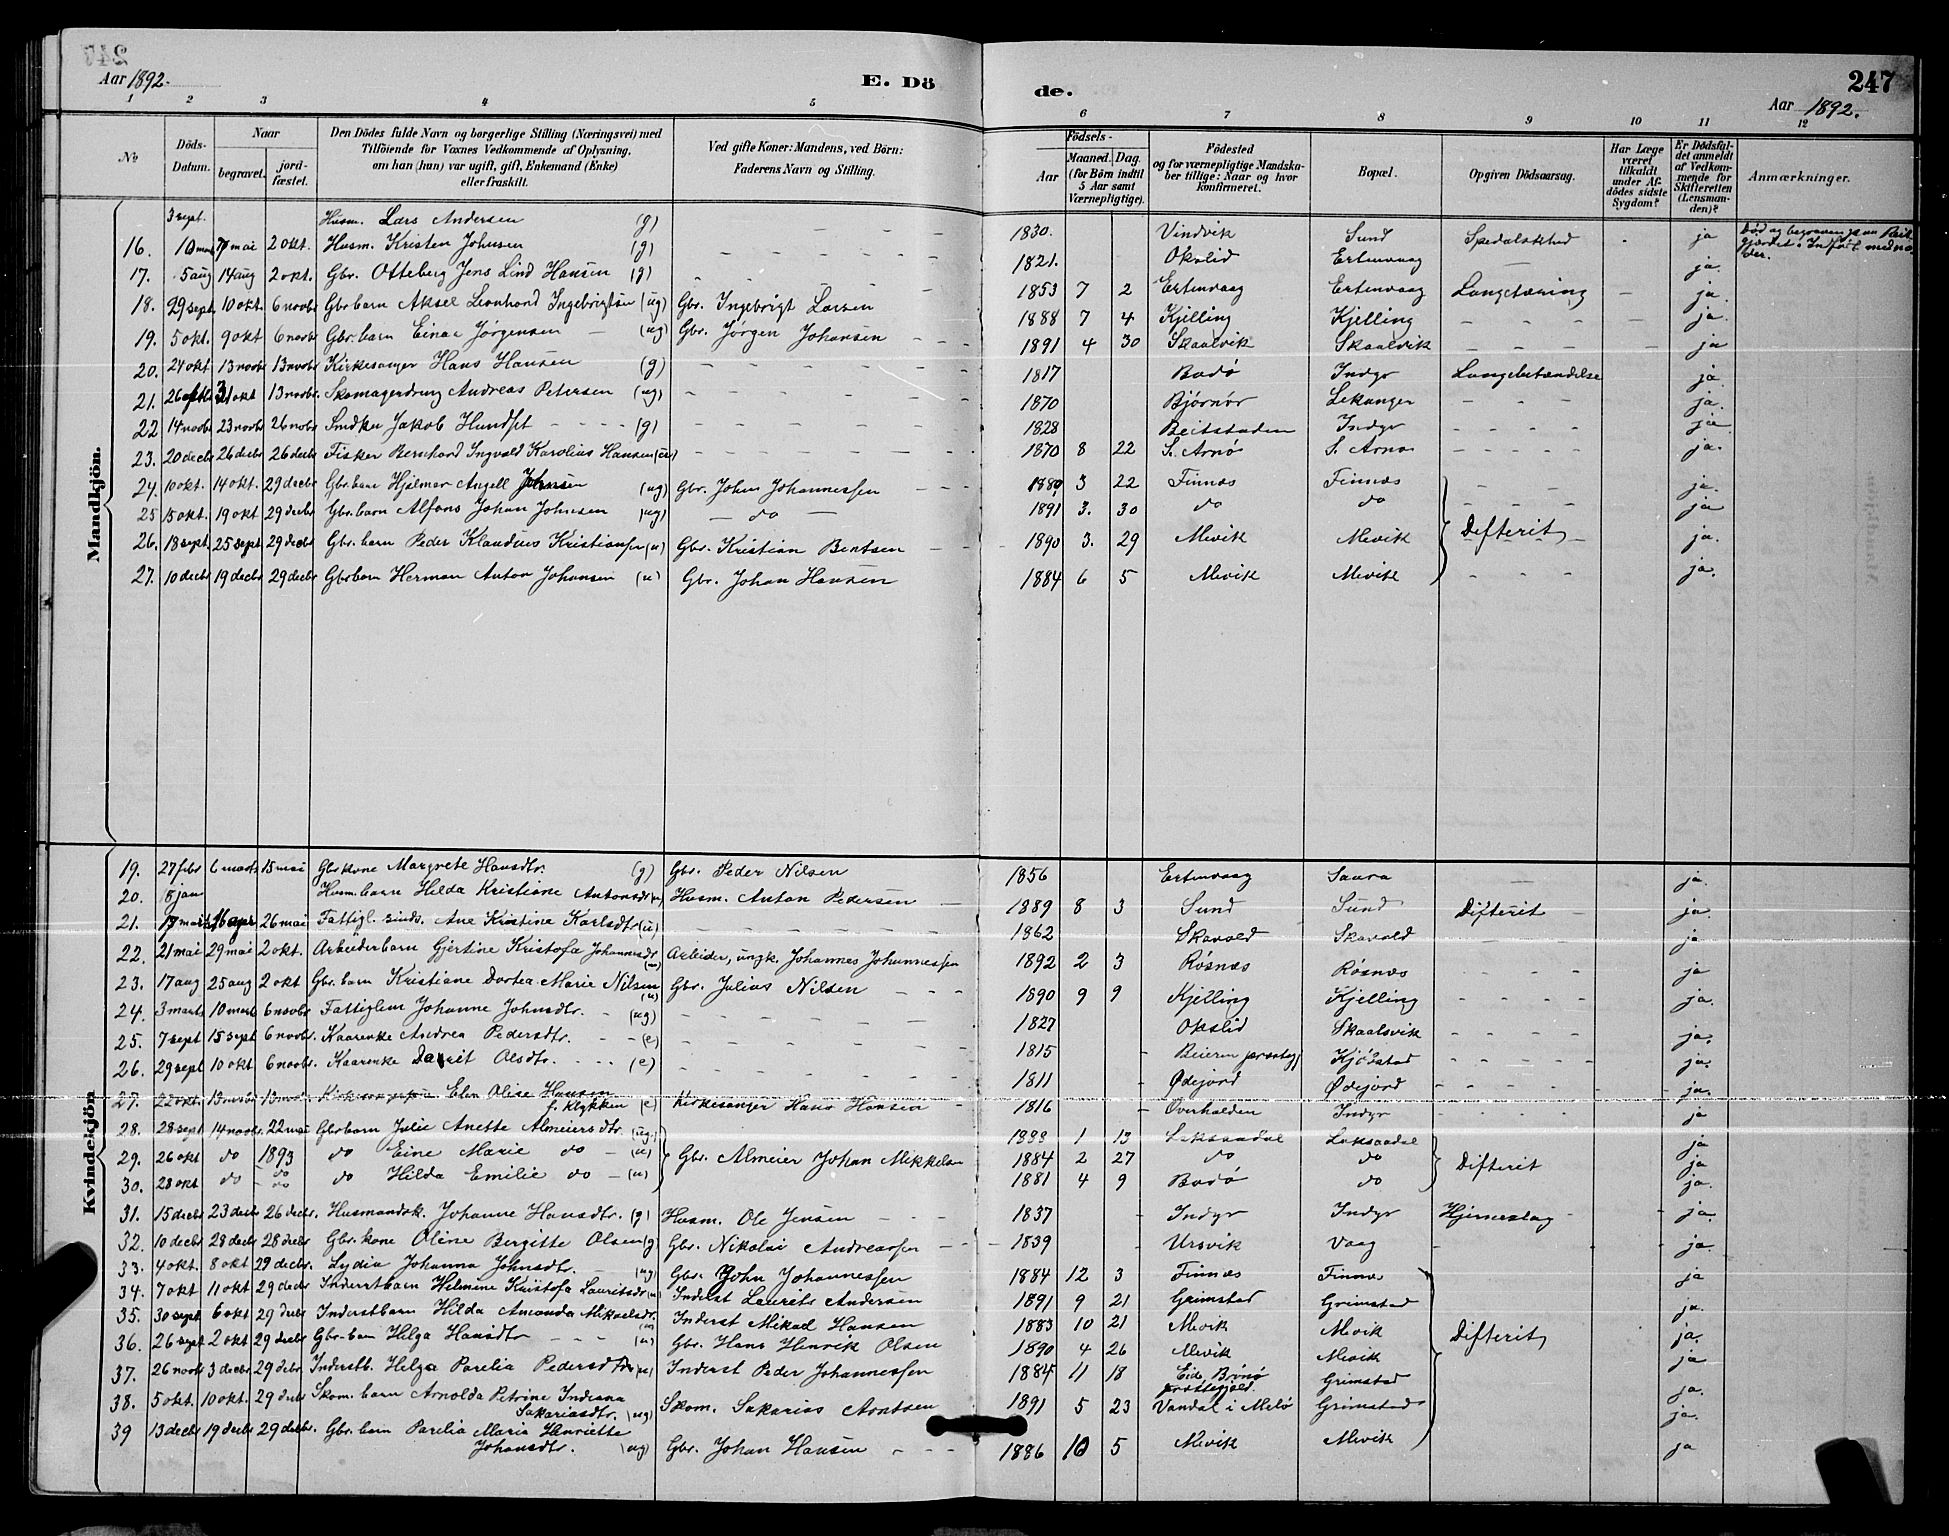 247
Aar 1892.
E. Dö
de.
Aar 1892.
1 2 3 4 5 6 7 8 9 10 11 12
№
Döds-Datum.
Naar
begravet.
jord-fæstet.
Den Dödes fulde Navn og borgerlige Stilling (Næringsvei) med
Tilföiende for Voxnes Vedkommende af Oplysning,
om han (hun) var ugift, gift, Enkemand (Enke)
eller fraskilt.
Ved gifte Koner: Mandens, ved Börn:
Faderens Navn og Stilling.
Födsels-
Aar
Maaned. Dag.
(for Börn indtil
5 Aar samt
Værnepligtige).
Födested
og for værnepligtige Mandska-
ber tillige: Naar og hvor
konfirmeret.
Bopæl.
Opgiven Dödsaarsag.
Har Læge
været
tilkaldt
under Af-
dödes sidste
Sygdom?
Er Dödsfal-
det anmeldt
af Vedkom-
mende for
Skifteretten
(Lensman-
den)?
Anmærkninger.
Mandkjön.
3 sept. Husm. Lars Andersen (g) 1830. Vindvik Sund Spedalskhed ja
16. 10 mai 2 okt. Husm. Kristen Johnsen (g) 1821. Okslid Ertenvaag ja.
17. 5 aug 14 aug 2 okt. Gbr. Otteberg Jens Lind Hansen (g) 1853 7 2 Ertenvaag Ertenvaag Lungetæring ja.
18. 29 sept. 10 okt. 6 novbr Gbr barn Aksel Leonhard Ingebrigtsen (ug) Gbr. Ingebrigt Larsen 1888 7 4 Kjelling Kjelling ja.
19. 5 okt. 9 okt 6 novbr Gbr. barn Einar Jørgensen (ug) Gbr. Jørgen Johansen 1891 4 30 Skaalvik Skaalvik ja
20. 24 okt 13 novbr 13 novbr Kirkesanger Hans Hansen (g) 1817 Bodø Indyr Lungebetændelse ja.
21. 31 okt 13 novbr. Skomagerdreng Andreas Petersen (ug) 1870 Bjørnør Lekanger ja.
22 14 novbr 23 novbr 26 novbr Jakob Hundset (g) 1828 Beitstaden Indyr ja
23. 20 decbr 26 decbr 26 decbr Fisker Bernhard Ingvald Karolius Hansen (u) 1870 8 22 S. Arnø S. Arnø ja.
24. 10 okt. 14 okt. 29 decbr Gbr. barn Hjelmar Angell Johnsen (ug) Gbr. John Johannessen 3 22 Finnæs Finnæs ja.
25 15 okt. 19 okt 29 decbr Gbr. barn Alfons Johan Johnsen (ug) do 1891 3. 30 do do ja
26. 18 sept 25 sept 29 decbr Gbr. barn Peder Klaudius Kristiansen (u) Gbr. Kristian Bentsen 1890 3. 29 Mevik Mevik Difterit ja.
27. 10 decbr 19 decbr 29 decbr Gbr barn Herman Anton Johansen (u) Gbr. Johan Hansen 1884 6 5 Mevik Mevik ja.
Kvindekjön
19. 27 febr 6 marts 15 mai Gbr kone Margrete Hansdtr. (g) Gbr. Peder Nilsen 1856 Ertenvaag Saura ja.
20. 8 jan Husm. barn Hilda Kristiane Antonsdtr (u) Husm. Anton Pedersen 1889 8 3 Sund Sund Difterit ja.
21. 26 mai Fattigl. sinds. Ane Kristine Karlsdtr (u) 1862 Skavold Skavold ja
22. 21 mai 29 mai 2 okt. Arbeiderbarn Gjertine Kristofa Johannesdtr (u) Arbeider, ungk. Johannes Johannessen 1892 2 3 Røsnæs Røsnæs ja
23. 17 aug 25 aug 2 okt Gbr. barn Kristiane Dortea Marie Nilsen (u) Gbr. Julius Nilsen 1890 9 9 Kjelling Kjelling ja.
24. 3 marts 10 marts 6 novbr Fattiglem Johanne Johnsdtr. (ug) 1827 Okslid Skaalsvik ja.
25. 7 sept 15 sept 6 novbr. Kaarenke Andrea Pedersdtr. (e) 1815 Beieren Kjøbstad ja.
26. 29 sept 10 okt 6 novbr. Kaarenke Olsdtr. (e) 1811 Ødejord Ødejord ja.
27. 22 okt. 13 novbr. 13 novbr. Elen Olise Hansen
f. Klykken (e) Kirkesanger Hans Hansen 1816 Overhalden Indyr ja
28. 28 sept 14 novbr. 22 mai Gbr barn Julie Anette Almeiersdtr. (ug.) 1 13 ja
29. 26 okt do 1893 do Eine Marie do (u) Gbr. Almeier Johan Mikkelsen 1884 2 27 do do Difterit ja
30. 28 okt do do do Hilda Emilie do (u) 1881 4 9 Bodø do ja.
31. 15 decbr 23 decbr 26 decbr. Husmandsk. Johanne Hansdtr. (g) Husm. Ole Jensen 1837 Indyr Indyr Hjerneslag ja.
32. 10 decbr 28 decbr 28 decbr Gbr. kone Oline Bergitte Olsen (g) Gbr. Nikolai Andreassen 1839 Ursvik Vaag ja.
33. 4 okt. 8 okt 29 decbr. Lydia Johanna Johnsdtr. (ug) Gbr. John Johannessen 1884 12 3 Finnæs Finnæs ja
34. 7 okt 11 okt 29 decbr Inderstbarn Helmine Kristofa Lauritsdtr (u) Inderst Laurits Andersen 1891 9 21 Grimstad Grimstad ja.
35. 30 sept 6 okt 29 decbr Inderstbarn Hilda Amanda Mikaelsdtr. (u) Inderst Mikael Hansen 1883 10 21 Mevik Mevik Difterit ja.
36. 26 sept 2 okt 29 decbr Gbr. barn Helga Hansdtr (u) Gbr. Hans Henrik Olsen 1890 4 26 Mevik Mevik ja
37. 26 novbr 3 decbr 29 decbr. Inderstb. Helga Parelia Pedersdtr (u) Inderst Peder Johannessen 1884 11 18 Eid, Brønø
Grimstad ja.
38. 5 okt 10 okt. 29 decbr Skom. barn Arnolda Petrine Indiana
Sakariasdtr. (ug) Skom. Sakarias Arntsen 1891 5 23 Vandal i Melø Grimstad ja.
39 13 decbr 19 decbr 29 decbr. Gbr. barn Parelia Maria Henriette
Johansdtr. (ug) Gbr. Johan Hansen 1886 10 5 Mevik Mevik ja